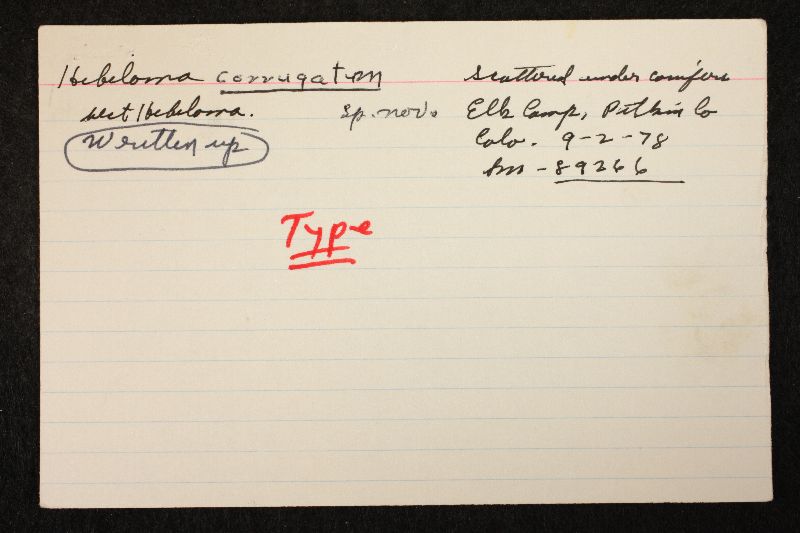 Hebeloma corrugatum
sect Hebeloma. sp. nov.
Written up
Scattered under conifers
Elk Camp, Pitkin Co
Colo. 9-2-78
Sm - 89266
Type